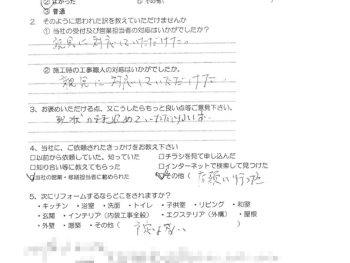 ② よかった
③ 普通
2. そのように思われた訳を教えていただけませんか
① 当社の受付及び営業担当者の対応はいかがでしたか?
親切に対応していただけた。
② 施工時の工事職人の対応はいかがでしたか。
親切に対応していただけた
3、お褒めいただける点、又こうしたらもっと良い点等ご意見下さい。
4、当社に、ご依頼されたきっかけをお教え下さい
□以前から依頼していた、知っていた □チラシを見て申し込んだ
□知り合い等に教えてもらった □インターネットで検索して見つけた
□当社の営業・修繕担当者に勧められた □その他(
5、次にリフォームするならどこをされますか?
・キッチン ・浴室 ・洗面 ・トイレ ・子供室 ・リビング ・和室
・玄関 ・インテリア(内装工事全般) ・エクステリア(外構) ・屋根
・外壁 ・増築 ・その他(